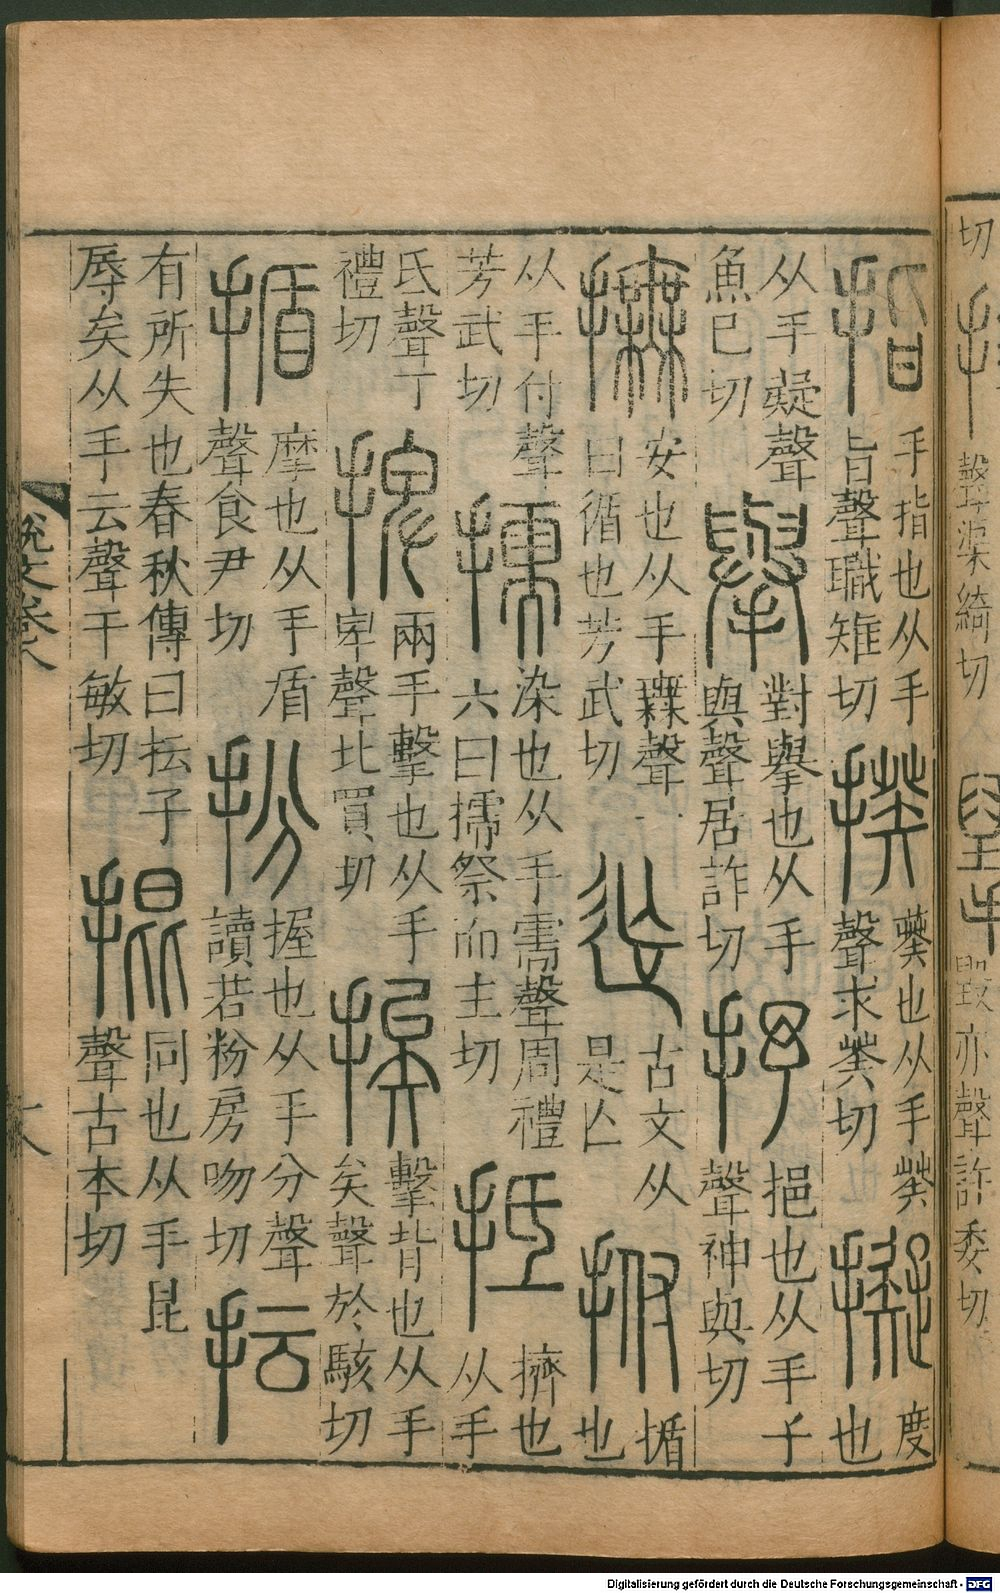 切 聲渠綺切 毀亦聲許委切
指 手指也从手旨聲職雉切 揆 葵也从手癸聲求癸切 擬 度也
从手疑聲魚巳切 擧 對擧也从手與聲居詐切 抒 挹也从手予聲神與切
撫 安也从手無聲一曰循也芳武切 𢓲 古文从是亾 拊 揗也
从手付聲芳武切 擩 染也从手需聲周禮六曰擩祭而主切 抵 擠也从手
氐聲丁禮切 捭 兩手擊也从手卑聲北買切 挨 擊背也从手矣聲於駭切
揗 摩也从手盾聲食尹切 扮 握也从手分聲讀若粉房吻切 抎
有所失也春秋傳曰抎子辱矣从手云聲于敏切 掍 同也从手昆聲古本切
說文卷八
Digitalisierung gefördert durch die Deutsche Forschungsgemeinschaft - DFG